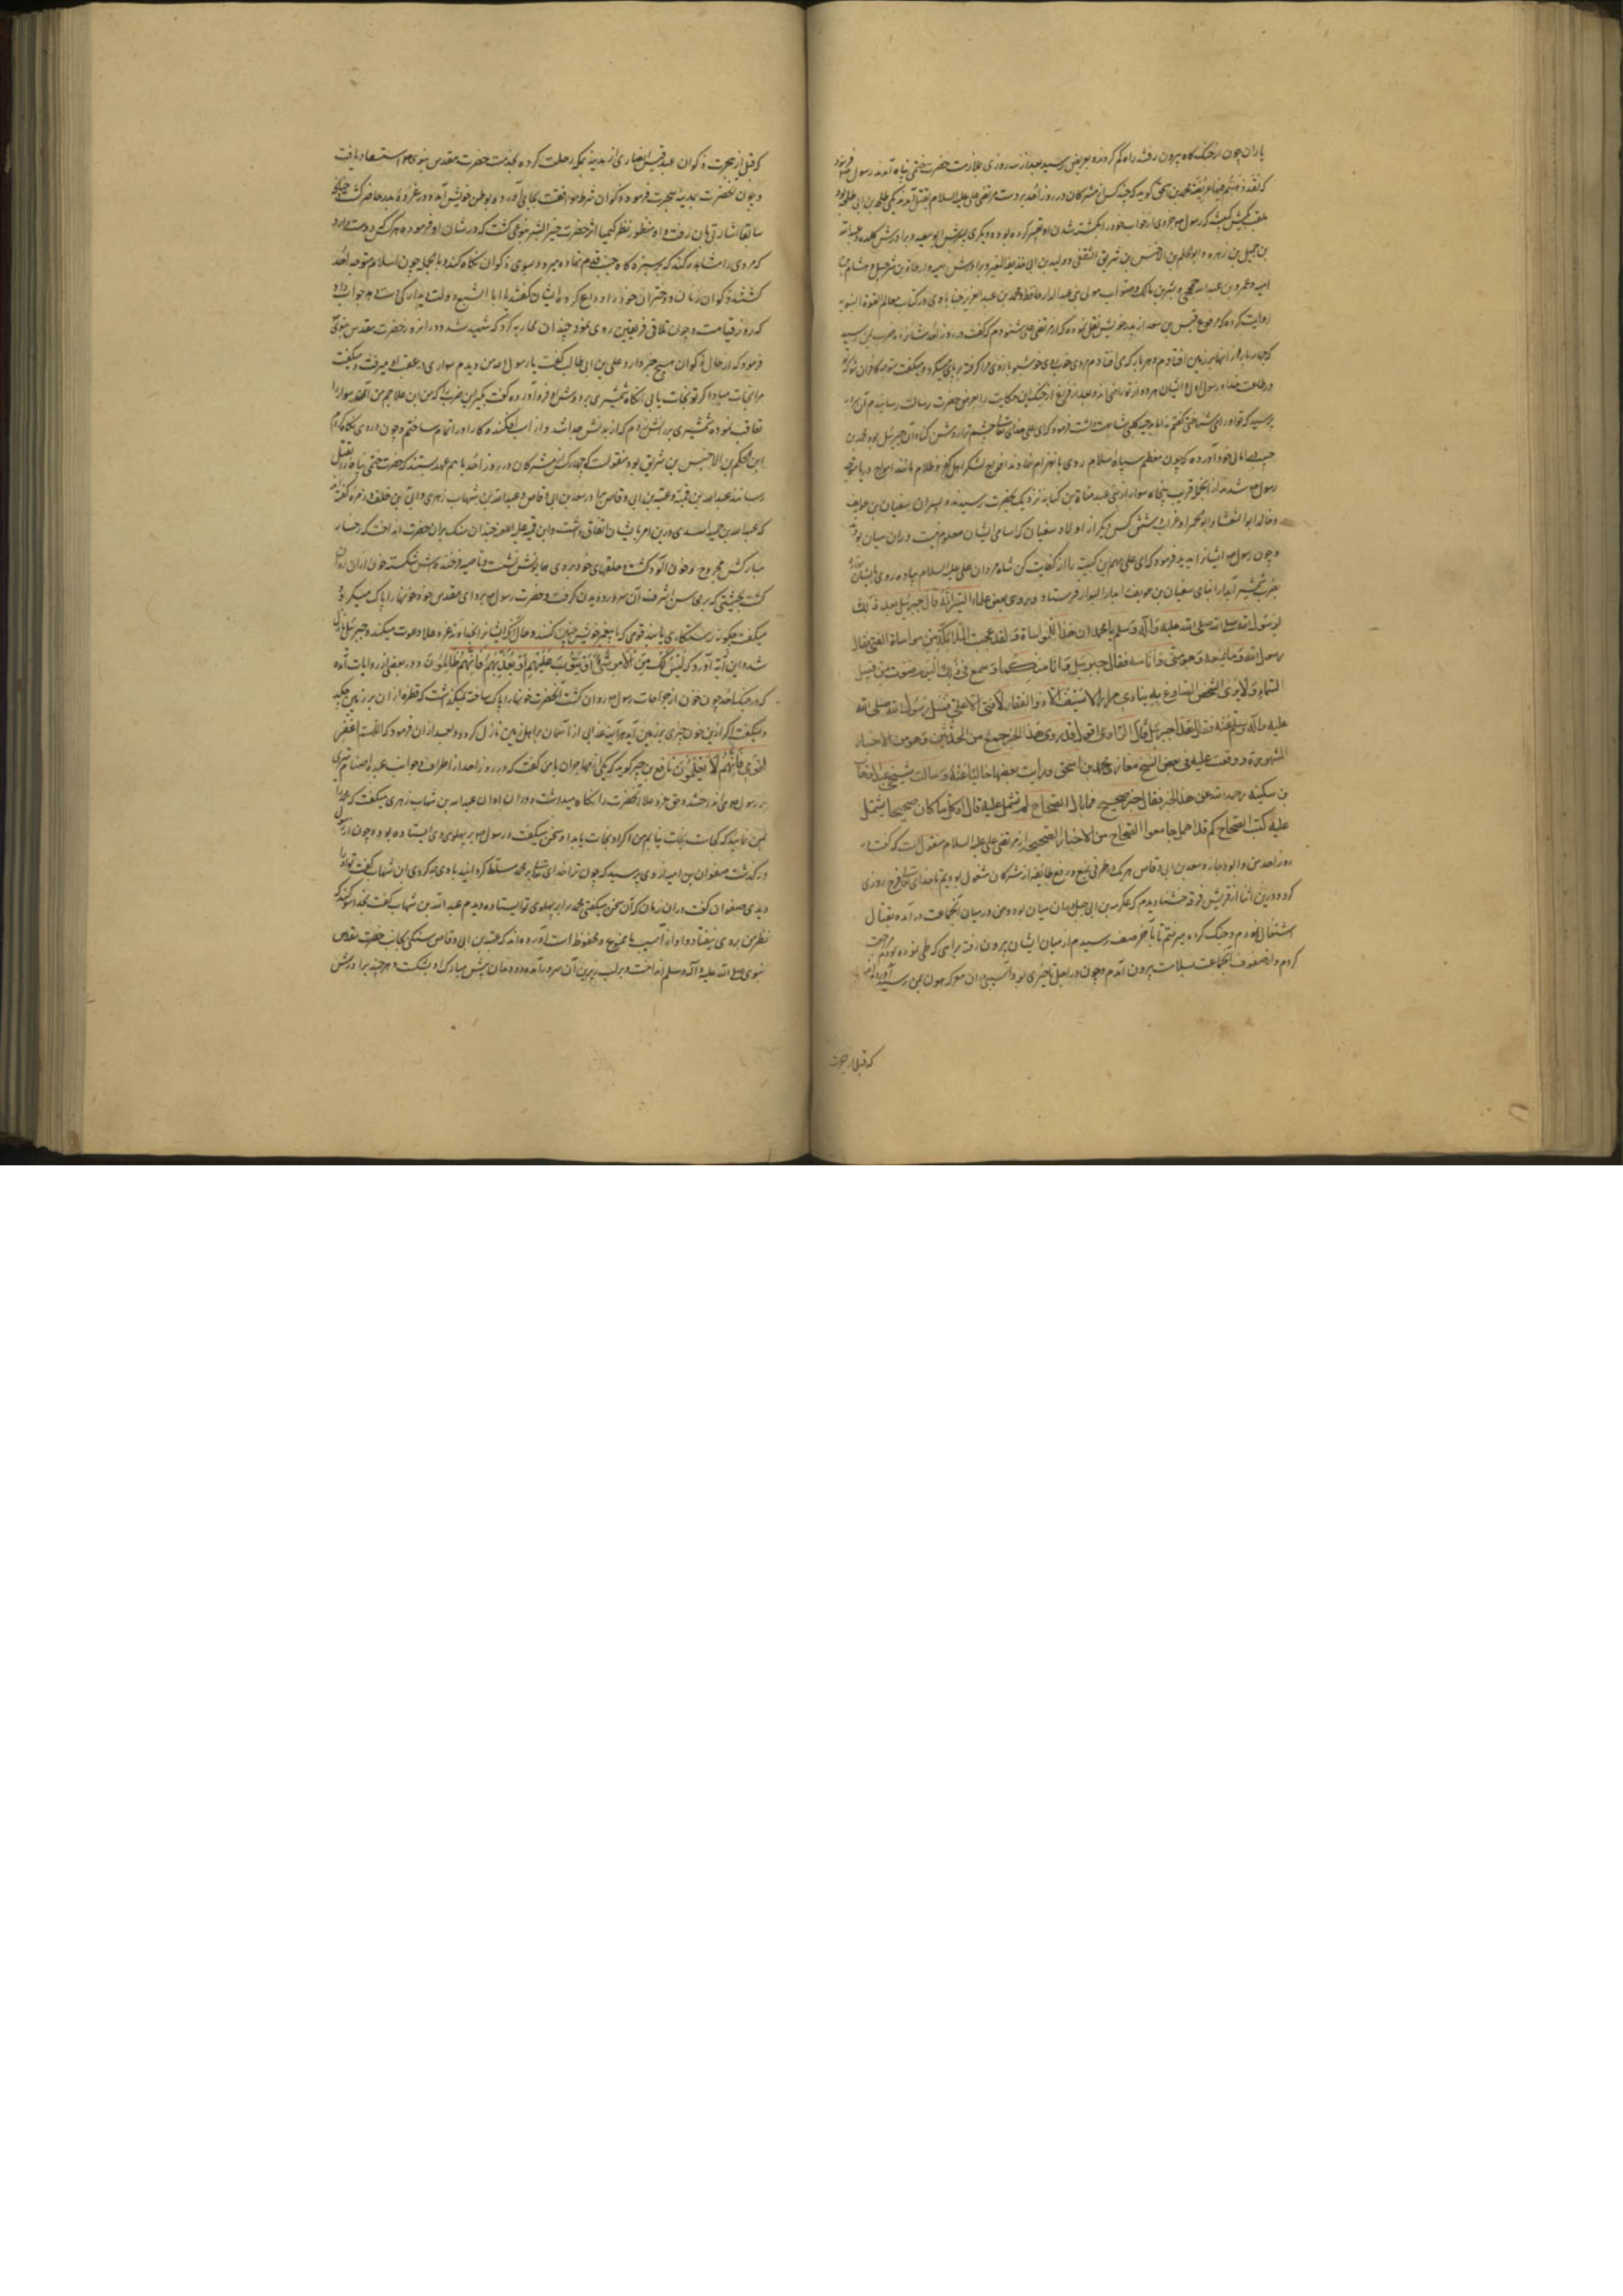 یاران چون از جنگ گاه بیرون رفتند راه گم کردند بعریض رسیدند بعد از سه روزی بملازمت حضرت ختمی پناه آمدند رسول فرمود
که لقد ذهبتم فیها عریضة محمد بن اسحق گوید که چند کس از مشرکان در روز احد بر دست مرتضی علی علیه السلام بقتل آمدند یکی طلحه بن ابی طلحه بود
ملقب بکبش کتیبه که رسول از خواب خود در کشته شدن او تعبیر کرده بود و دیگری پسرش ابو سعید و برادرش کلده و عبد الله
بن جمیل بن زهره و ابو الحکم بن الاخنس بن شریق الثقفی و ولید بن ابی حذیفة المغیره و برادرش امیه و ارطاة بن شرحبیل و هشام بن
امیه و عمرو بن عبد الله جمحی و بشر بن مالک و صواب مولی بنی عبد الدار حافظ محمد بن عبد العزیز جنابادی در کتاب معالم العترة النبویه
روایت کرده که مرفوع قیس بن سعد از پدر خویش نقل نموده که از مرتضی علی شنودم که گفت در روز احد شانزده ضرب بمن رسید
که چهار بار از آنها بر زمین افتادم و هر بار که می افتادم مردی خوب روی خوشبو بازوی مرا گرفته بر پای میکرد و میگفت متوجه کافران شو که
در طاعت خدا و رسول اوئی و ایشان هر دو از تو راضی اند و بعد از فراغ از جنگ این حکایت را بعرض حضرت رسالت رسانیدم آن سرور
پرسید که تو او را می شناختی گفتم نه اما بدحیه کلبی مشابهت داشت فرمود که ای علی خدای تعالی چشم ترا روشن کناد آن جبرئیل بود محمد بن
حبیب در امالی خود آورده که چون معظم سپاه اسلام روی بانهزام نهادند افواج لشکر اهل کفر و ظلام مانند امواج دریا متوجه
رسول شدند از آنجمله قریب پنجاه سوار از بنی عبد مناة بن کنانه نزدیک بحضرت رسیدند و پسران سفیان بن عویف
و خالد ابو الشعثاء و ابو الحمراء و غراب و شش کس دیگر از اولاد سفیان که اسامی ایشان معلوم نیست در آن میان بودند
و چون رسول ایشان را دید فرمود که ای علی مهم این کتیبه را از کفایت کن شاه مردان علی علیه السلام پیاده روی بایشان
بضرب شمشیر آبدار ابنای سفیان بن عویف را بدار البوار فرستاد و بروی بعض علماء السیر انه قال جبرئیل بعد ذلک
لرسول الله صلی الله علیه و آله و سلم یا محمد ان هذا للمواساة و لقد عجبت الملائکة من مواساة الفتی فقال
رسول الله و ما یمنعه و هو منی و انا منه فقال جبرئیل و انا منکما و سمع فی ذلک الیوم صوت من قبل
السماء و لا یری الشخص الصارخ به ینادی مرارا لا سیف الا ذو الفقار لا فتی الا علی فسئل رسول الله صلی الله
علیه و آله و سلم عنه فقال هذا جبرئیل قال الراوی اقول قد روی هذا الخبر جمیع من المحدثین و هو من الاخبار
المشهورة و وقعت علیه فی بعض النسخ مغازی محمد بن اسحق و رایت بعضها خالیا عنه و سالت شیخی عبد الوهاب
بن سکینه رحمه الله عن هذا الخبر فقال خبر صحیح فما بال الصحاح لم تشتمل علیه قال او کل ما کان صحیحا یشتمل
علیه کتب الصحاح کم قد اهمل جامعوا الصحاح من الاخبار الصحیحه از مرتضی علی علیه السلام منقول است که گفت
روز احد من و ابو دجانه و سعد بن ابی وقاص هر یک در طرفی بمنع و دفع طائفه از مشرکان مشغول بودیم تا خدای تعالی فرج روزی
کرد و در این اثنا از قریش فرقه خشنا دیدم که عکرمه بن ابی جهل در آن میان بود و من در میان آن جماعت در آمده بقتال
اشتغال نمودم و جنگ کرده میرفتم تا بآخر صف رسیدم از میان ایشان بیرون رفته براهی که طی نموده بودم مراجعت
کردم و از صفوف آن جماعت بسلامت بیرون آمدم و چون در اجل تاخیری بود آسیبی از آن معرکه هول بمن نرسید آورده اند
که قبل از هجرت
که قبل از هجرت ذکوان عبد قیس انصاری از مدینه بمکه رحلت کرده بخدمت حضرت مقدس نبوی استسعاد یافت
و چون آنحضرت بمدینه هجرت فرمود ذکوان شرط موافقت بجای آورده بوطن خویش آمد و در غزوه بدر حاضر گشت چنانچه
سابقا اشارتی بآن رفت و او منظور نظر کیمیا اثر حضرت خیر البشر بنوعی گشت که در شان او فرمود هر کس دوست دارد
که مردی را مشاهده کند که بر سبزه گاه جنت قدم نهاده میرود بسوی ذکوان نگاه کند و بالجمله چون اسلام متوجه احد
گشتند ذکوان زنان و دختران خود را وداع کرد و ایشان گفتند یا ابا السبع دولت دیدار کی دست دهد جواب داد
که روز قیامت و چون تلاقی فریقین روی نمود چندان محاربه کرد که شهید شد و در آن روز حضرت مقدس نبوی
فرمود که از حال ذکوان هیچ خبر دارد علی بن ابی طالب گفت یا رسول الله من دیدم سواری در عقب او میرفت و میگفت
مرا نجات مبادا اگر تو نجات یابی آنگاه شمشیری بر دوش او فرود آورده گفت بگیر این ضرب را که من ابن علاجم من آن سوار را
تعاقب نموده شمشیری بر رانش زدم که از بدنش جدا شد و از اسب افکنده کار او را تمام ساختم و چون در وی نگاه کردم
ابن الحکم بن الاخنس بن شریق بود منقولست که چهار کس از مشرکان در روز احد با هم عهد بستند که حضرت ختمی پناه را بقتل
رسانند عبد الله بن قمیه و عتبه بن ابی وقاص برادر سعد بن ابی وقاص و عبد الله بن شهاب زهری و ابی بن خلف و زمره گفته اند
که عبد الله بن حمید الاسدی در این امر با ایشان اتفاق داشت و ابن قمیه علیه اللعنه چندان سنگ بر آن حضرت انداخت که رخسار
مبارکش مجروح و خون آلود گشت و حلقهای خود بر روی همایونش نشست و ناصیه فرخنده اش شکسته خون از آن روان
گشت بحیثیتی که بر محاسن اشرف آن سرور دویدن گرفت و حضرت رسول بردای مقدس خود خونها را پاک میکرد و
میگفت چگونه رستگاری یابند قومی که با پیغمبر خویش چنین کنند و حال آنکه ایشان را بخداوند عز و علا دعوت میکند و جبرئیل نازل
شد و این آیه آورد که لَیْسَ لَکَ مِنَ الْاَمْرِ شَیْءٌ اَوْ یَتُوبَ عَلَیْهِمْ اَوْ یُعَذِّبَهُمْ فَاِنَّهُمْ ظَالِمُونَ و در بعضی از روایات آمده
که در جنگ احد چون خون از جراحات رسول روان گشت آنحضرت خونها را پاک ساخته نمیگذاشت که قطره از آن بر زمین چکد
و میگفت اگر از این خون چیزی بر زمین آید هر آینه عذابی از آسمان بر اهل زمین نازل گردد و بعد از آن فرمود که اللهم اغفر
لقومی فانهم لا یعلمون نافع بن جبیر گوید که یکی از مهاجران با من گفت که در روز احد از اطراف و جوانب عبده اصنام تیری
بر رسول می انداختند و حق عز و علا آنحضرت را نگاه میداشت و در آن اوان عبد الله بن شهاب زهری میگفت که محمد را
بمن نمایید که نجات نیابم من اگر او نجات یابد این سخن میگفت و رسول بر پهلوی وی ایستاده بود و چون از رسول
درگذشت صفوان بن امیه از وی پرسید که چون ترا خدای تعالی بر محمد مسلط گردانید با وی چه کردی ابن شهاب گفت تو او را
دیدی صفوان گفت در آن زمان که آن سخن میگفتی محمد برابر پهلوی تو ایستاده دیدم عبد الله بن شهاب گفت بخدا سوگند که
نظر من بر وی نیفتاد و او از آسیب ما ممنوع و محفوظ است آورده اند که عتبه بن ابی وقاص سنگی بجانب حضرت مقدس
نبوی صلی الله علیه و آله و سلم انداخت و بر لب زیرین آن سرور آمده دندان پیش مبارک او بشکست و هر چند برادرش